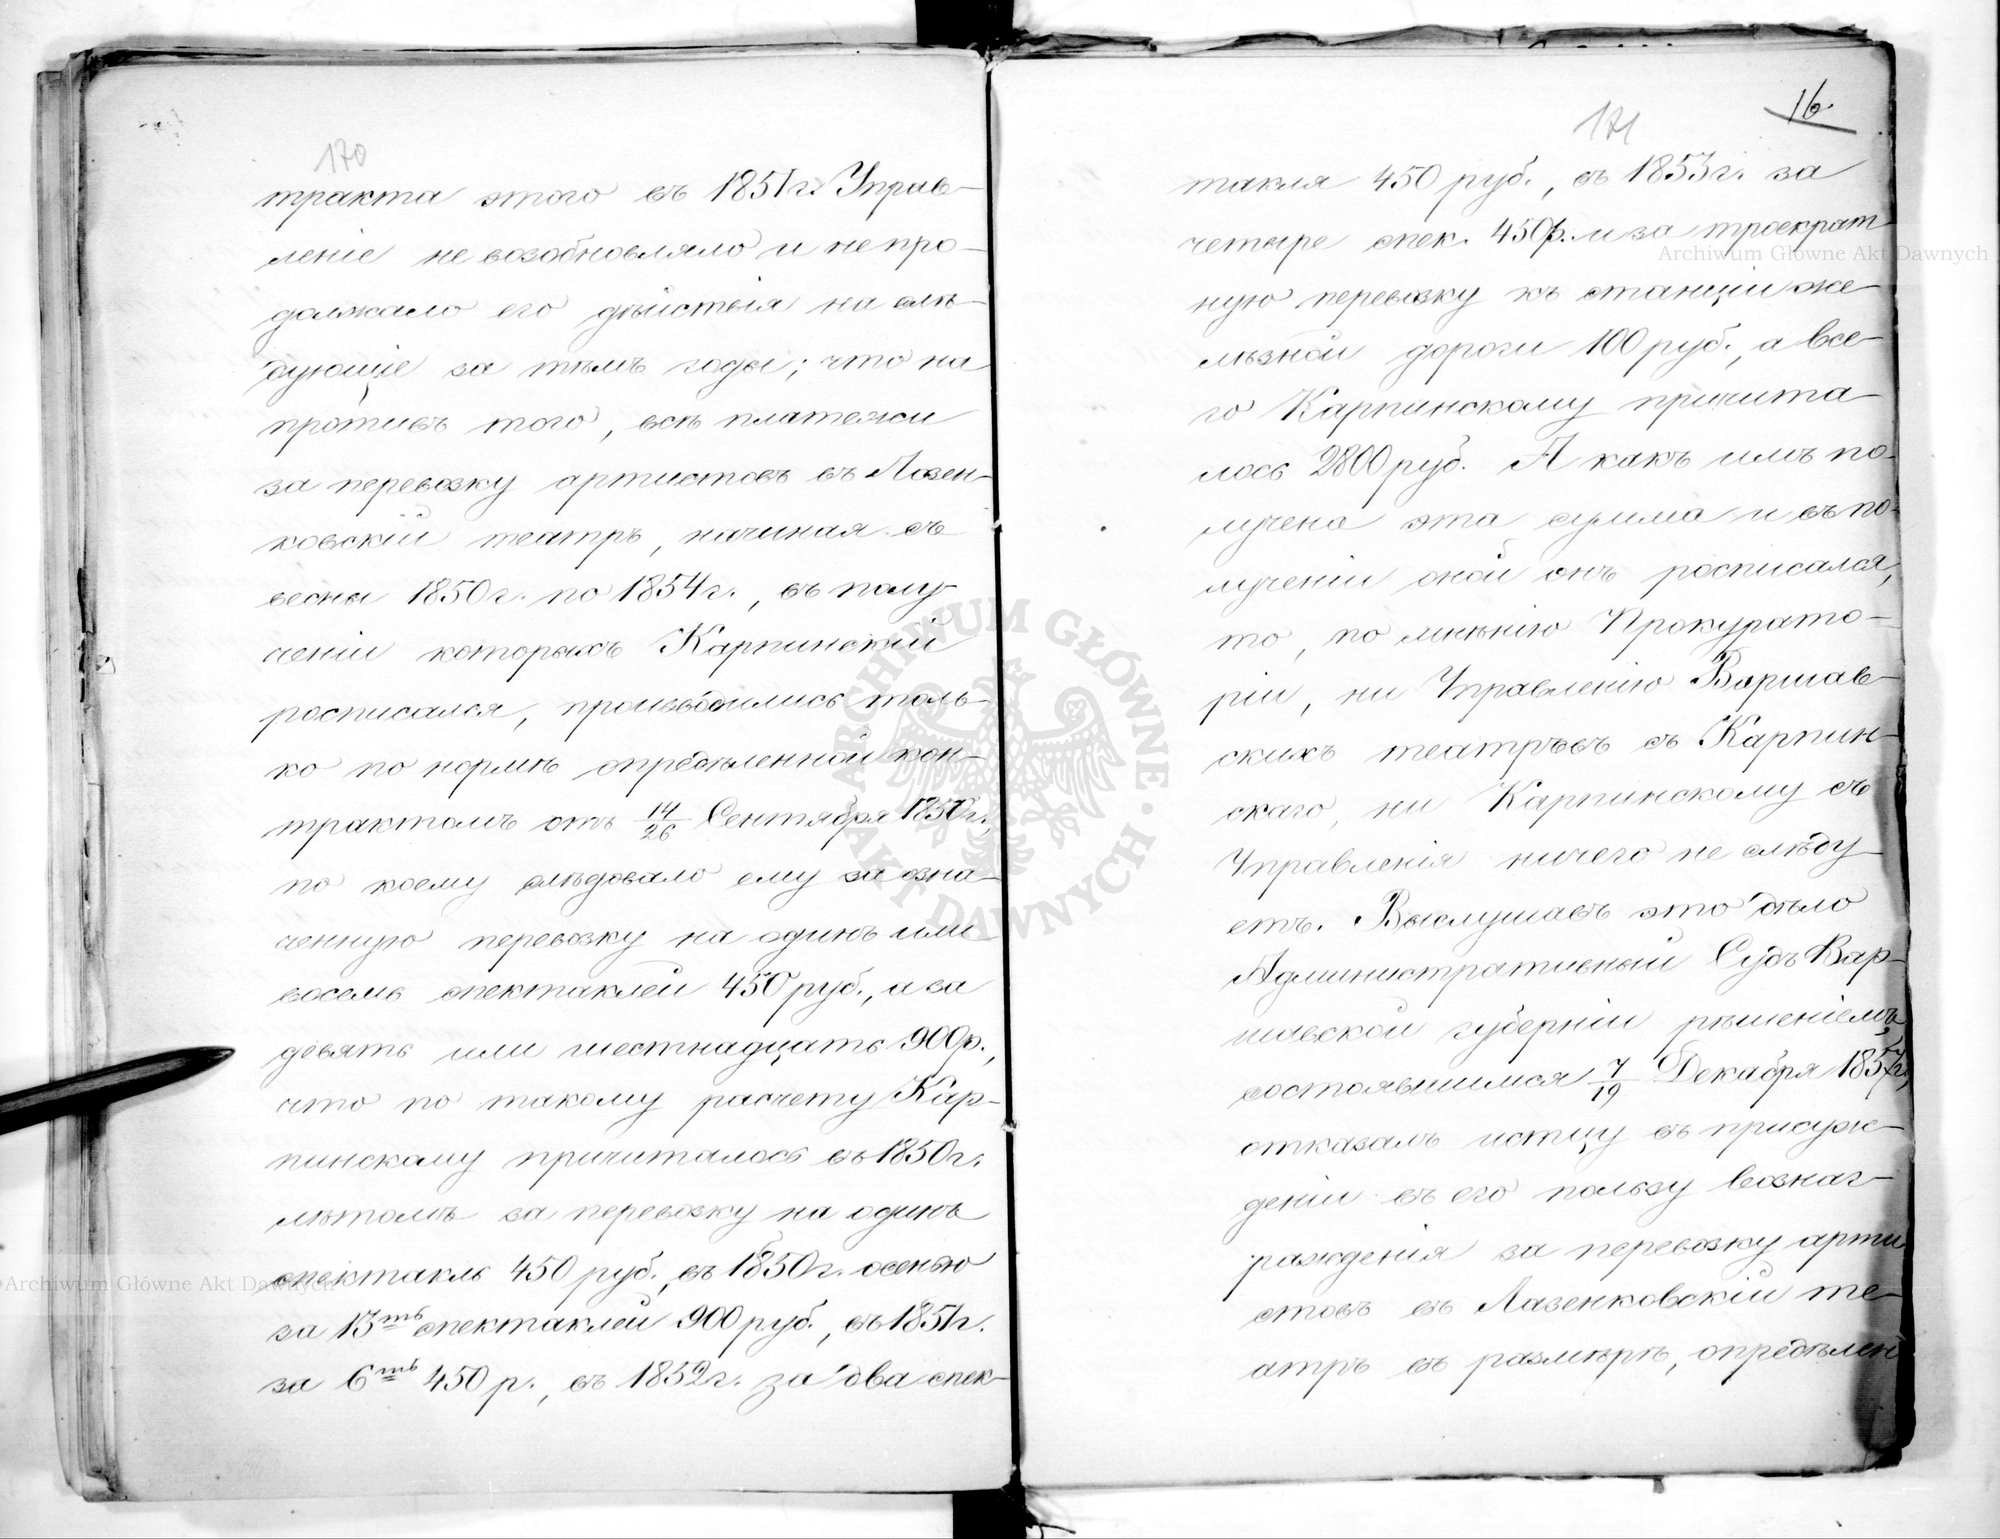 170
тракта этого въ 1851 г. Управ-
леніе не возобновляло и не про-
должало его дѣйствія на слѣ-
дующіе за тѣмъ годы; что на
противъ того, всѣ платежи
за перевозку артистовъ въ Лазен-
ковскій театръ, начиная съ
весны 1850 г. по 1854 г., въ полу-
ченіи которыхъ Карпинскій
росписался, производились толь-
ко по нормѣ опредѣленной кон-
трактомъ отъ 14/26 Сентября 1850 г.,
по коему слѣдовало ему за озна-
ченную перевозку на одинъ или
восемь спектаклей 450 руб., а за
девять или шестнадцать 900 р.,
что по такому расчету Кар-
пинскому причиталось въ 1850 г.
лѣтомъ за перевозку на одинъ
спектакль 450 руб., въ 1850 г. осенью
за 13ть спектаклей 900 руб., въ 1851 г.
за 6ть 450 р., въ 1852 г. за два спек-
16.
171
такля 450 руб., въ 1853 г. за
четыре спек. 450 р. и за троекрат-
ную перевозку къ станціи же-
лѣзной дороги 100 руб., а все-
го Карпинскому причита-
лось 2800 руб. А какъ имъ по-
лучена эта сумма и въ по-
лученіи оной онъ росписался,
то, по мнѣнію Прокурато-
ріи, ни Управленію Варшав-
скихъ театровъ съ Карпин-
скаго, ни Карпинскому съ
Управленія ничего не слѣду-
етъ. Выслушавъ это дѣло
Административный Судъ Вар-
шавской губерніи рѣшеніемъ,
состоявшимся 7/19 Декабря 1857 г.,
отказалъ истцу въ присуж-
деніи въ его пользу вознаг-
ражденія за перевозку арти
стовъ въ Лазенковскій те-
атръ въ размѣрѣ, опредѣлен
Archiwum Główne Akt Dawnych
Archiwum Główne Akt Dawnych
ARCHIWUM GŁÓWNE AKT DAWNYCH